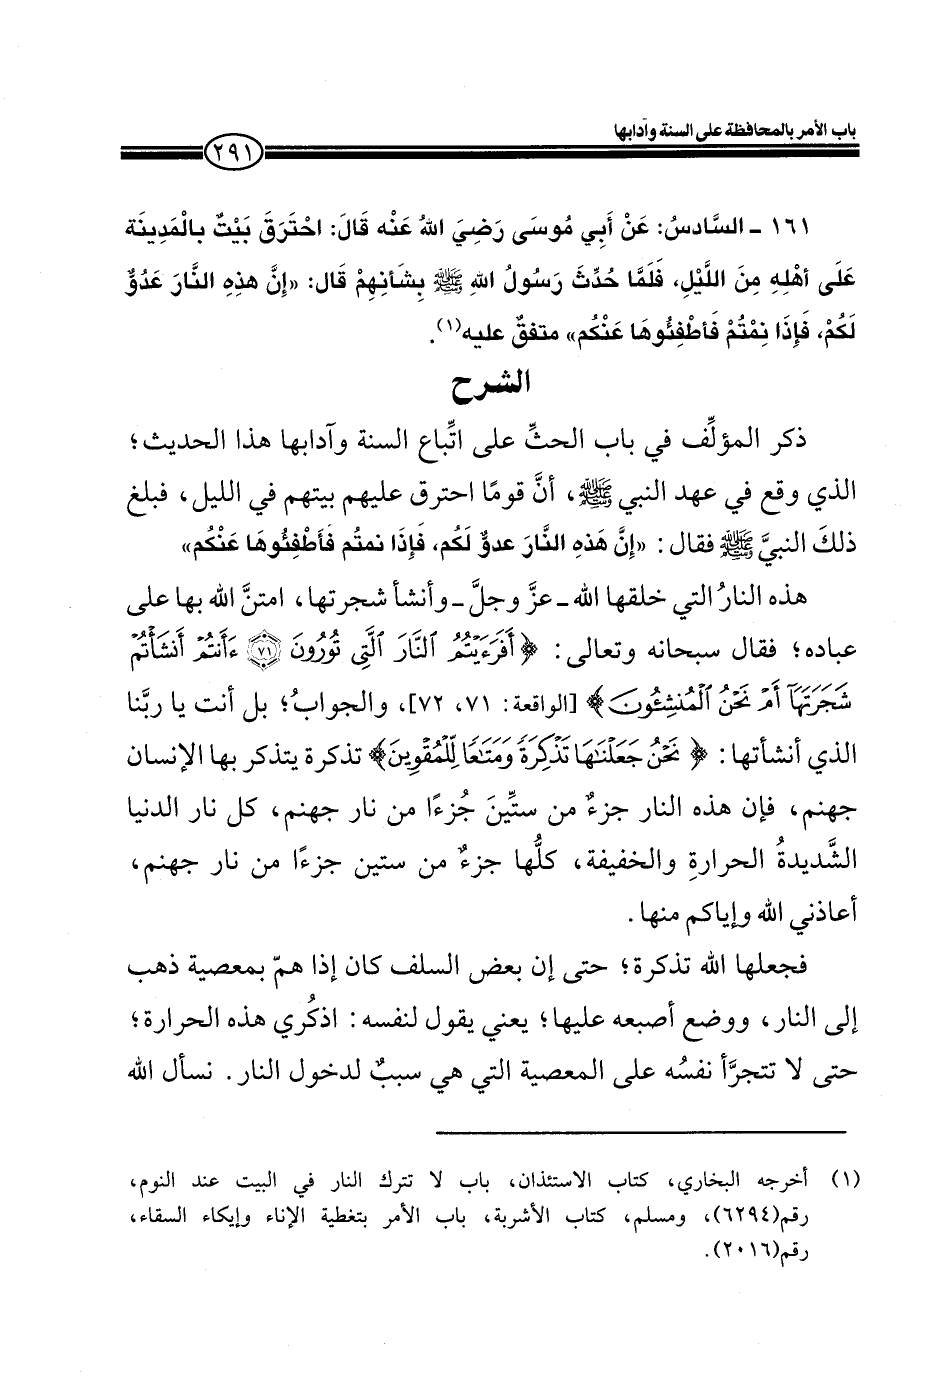 باب الأمر بالمحافظة على السنة وآدابها
٢٩١
١٦١ - السَّادسُ: عَنْ أَبِي مُوسَى رَضِيَ اللهُ عَنْه قَالَ: احْتَرَقَ بَيْتٌ بِالْمَدِينَة
عَلَى أهْلِهِ مِنَ اللَّيْلِ، فَلَمَّا حُدِّثَ رَسُولُ اللهِ ﷺ بِشَأنِهِمْ قَال: «إنَّ هذِهِ النَّارَ عَدُوٌّ
لَكُمْ، فَإِذَا نِمْتُمْ فَأطْفِئُوهَا عَنْكُم» متفقٌ عليه(١).
الشرح
ذكر المؤلِّف في باب الحثِّ على اتِّباع السنة وآدابها هذا الحديث؛
الذي وقع في عهد النبي ﷺ، أنَّ قومًا احترق عليهم بيتهم في الليل، فبلغ
ذلكَ النبيَّ ﷺ فقال: «إنَّ هَذِهِ النَّارَ عدوٌّ لَكُم، فَإِذَا نمتُم فَأَطْفِئُوهَا عَنْكُم»
هذه النارُ التي خلقها الله ـ عزَّ وجلَّ ـ وأنشأ شجرتها، امتنَّ الله بها على
عباده؛ فقال سبحانه وتعالى: ﴿أَفَرَءَيْتُمُ ٱلنَّارَ ٱلَّتِي تُورُونَ ۝٧١ ءَأَنتُمْ أَنشَأْتُمْ
شَجَرَتَهَآ أَمْ نَحْنُ ٱلْمُنشِئُونَ﴾ [الواقعة: ٧١، ٧٢]، والجوابُ؛ بل أنت يا ربَّنا
الذي أنشأتها: ﴿نَحْنُ جَعَلْنَٰهَا تَذْكِرَةً وَمَتَٰعًا لِّلْمُقْوِينَ﴾ تذكرة يتذكر بها الإنسان
جهنم، فإن هذه النار جزءٌ من ستِّينَ جُزءًا من نار جهنم، كل نار الدنيا
الشَّديدةُ الحرارةِ والخفيفة، كلُّها جزءٌ من ستين جزءًا من نار جهنم،
أعاذني الله وإياكم منها.
فجعلها الله تذكرة؛ حتى إن بعض السلف كان إذا همّ بمعصية ذهب
إلى النار، ووضع أصبعه عليها؛ يعني يقول لنفسه: اذكُري هذه الحرارة؛
حتى لا تتجرَّأ نفسُه على المعصية التي هي سببٌ لدخول النار. نسأل الله
(١) أخرجه البخاري، كتاب الاستئذان، باب لا تترك النار في البيت عند النوم،
رقم(٦٢٩٤)، ومسلم، كتاب الأشربة، باب الأمر بتغطية الإناء وإيكاء السقاء،
رقم(٢٠١٦).